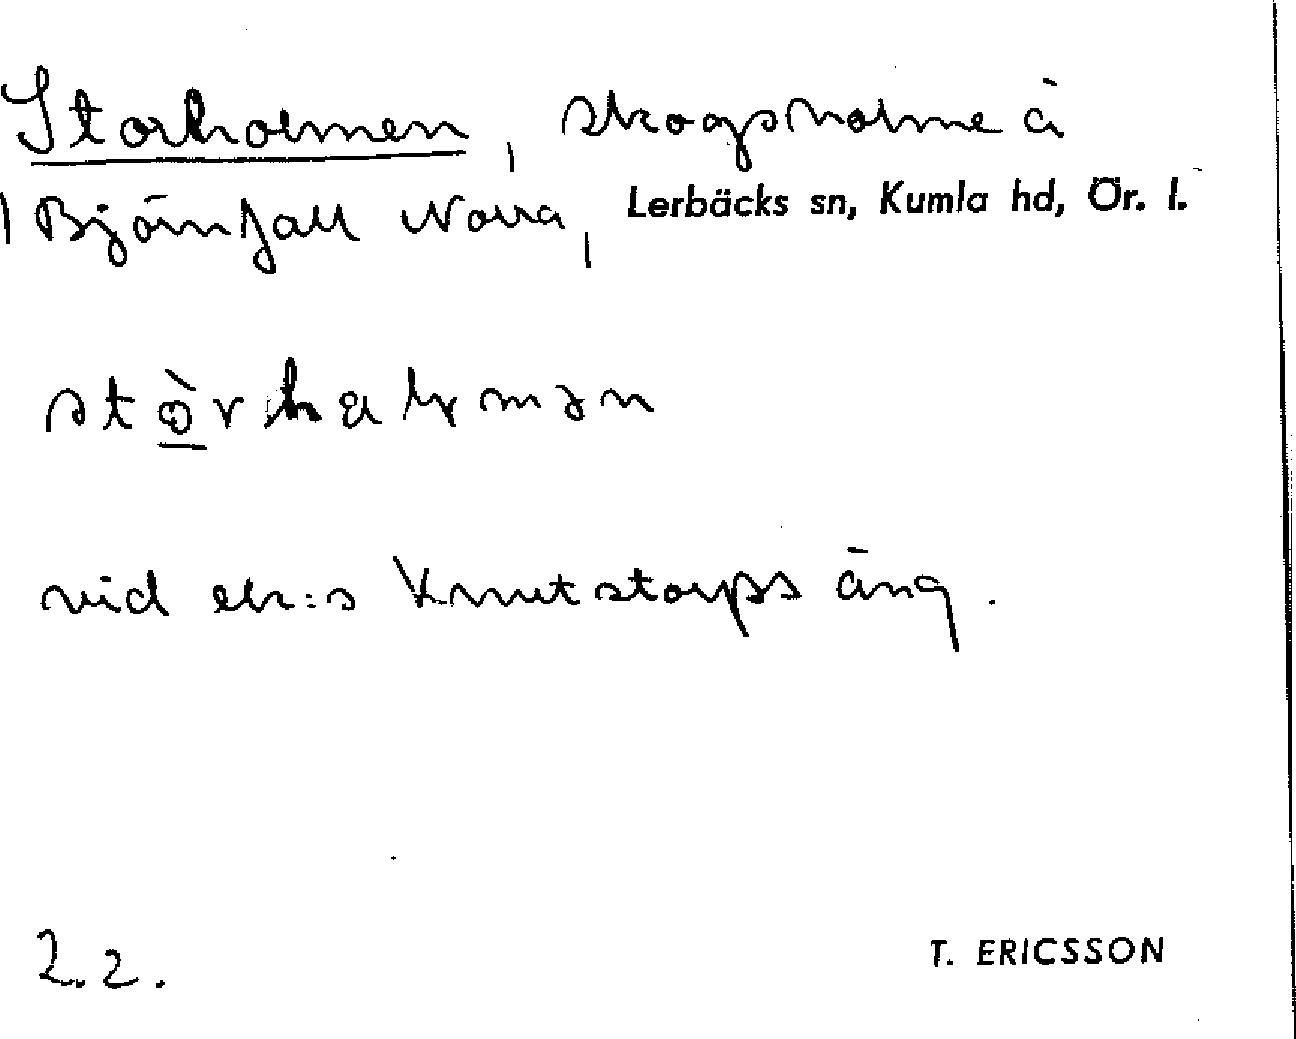 Storholmen, skogsholme å
Björnfall Norra, Lerbäcks sn, Kumla hd, Ör. l.
vid ek:s Knutstorps äng.
2.2.
T. ERICSSON